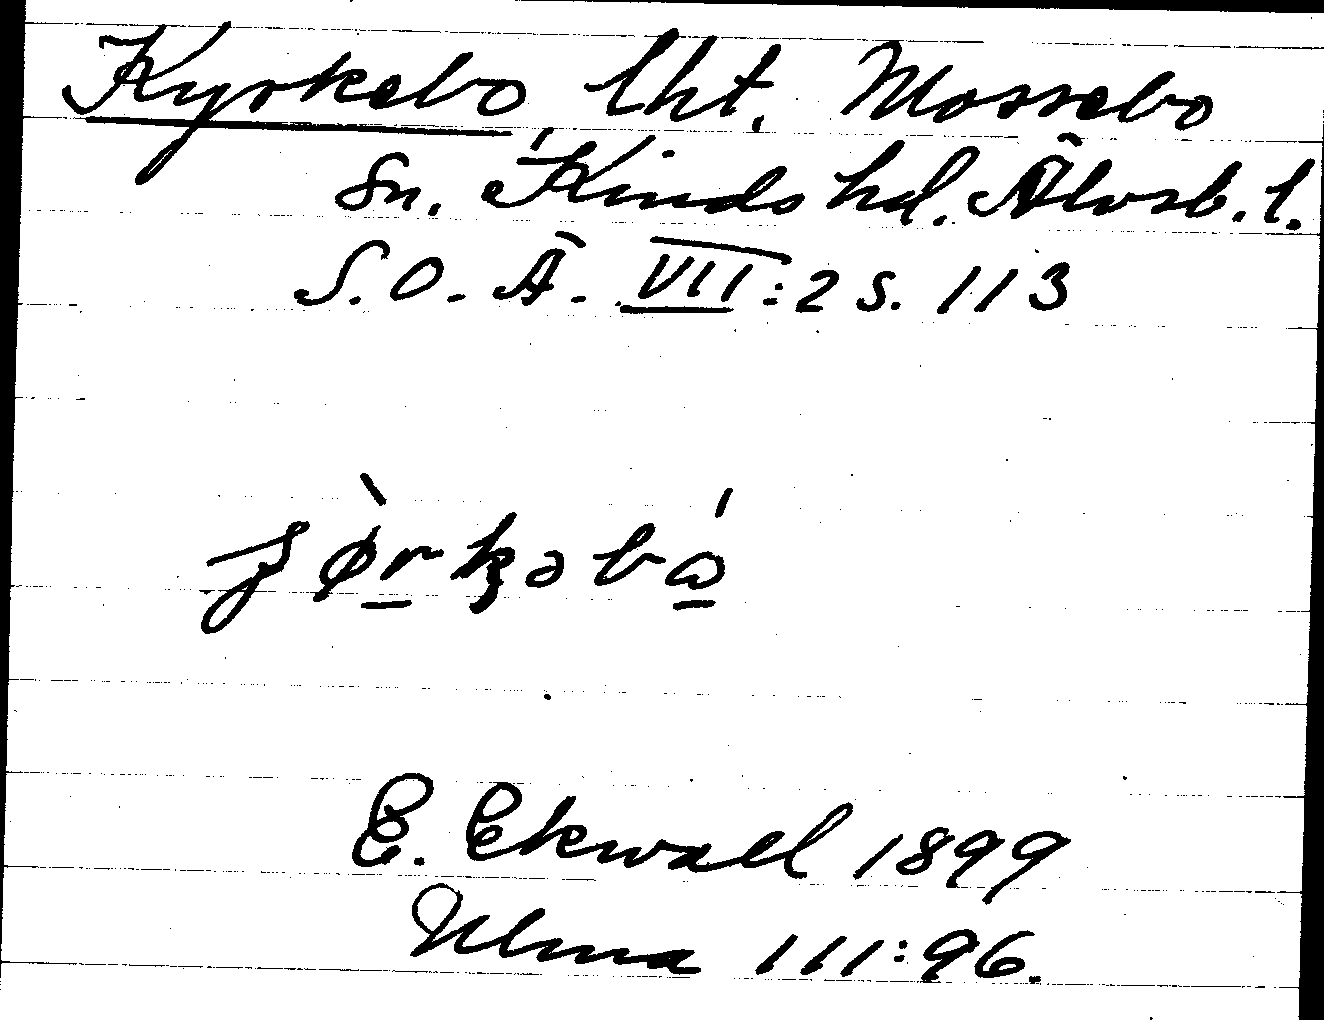 Kyrkebo, lht. Mossebo
Sn. Kinds hd. Älvsb. l.
S. O. Ä. VII:2 s. 113
E. Ekwall 1899
Ulma 111:96.